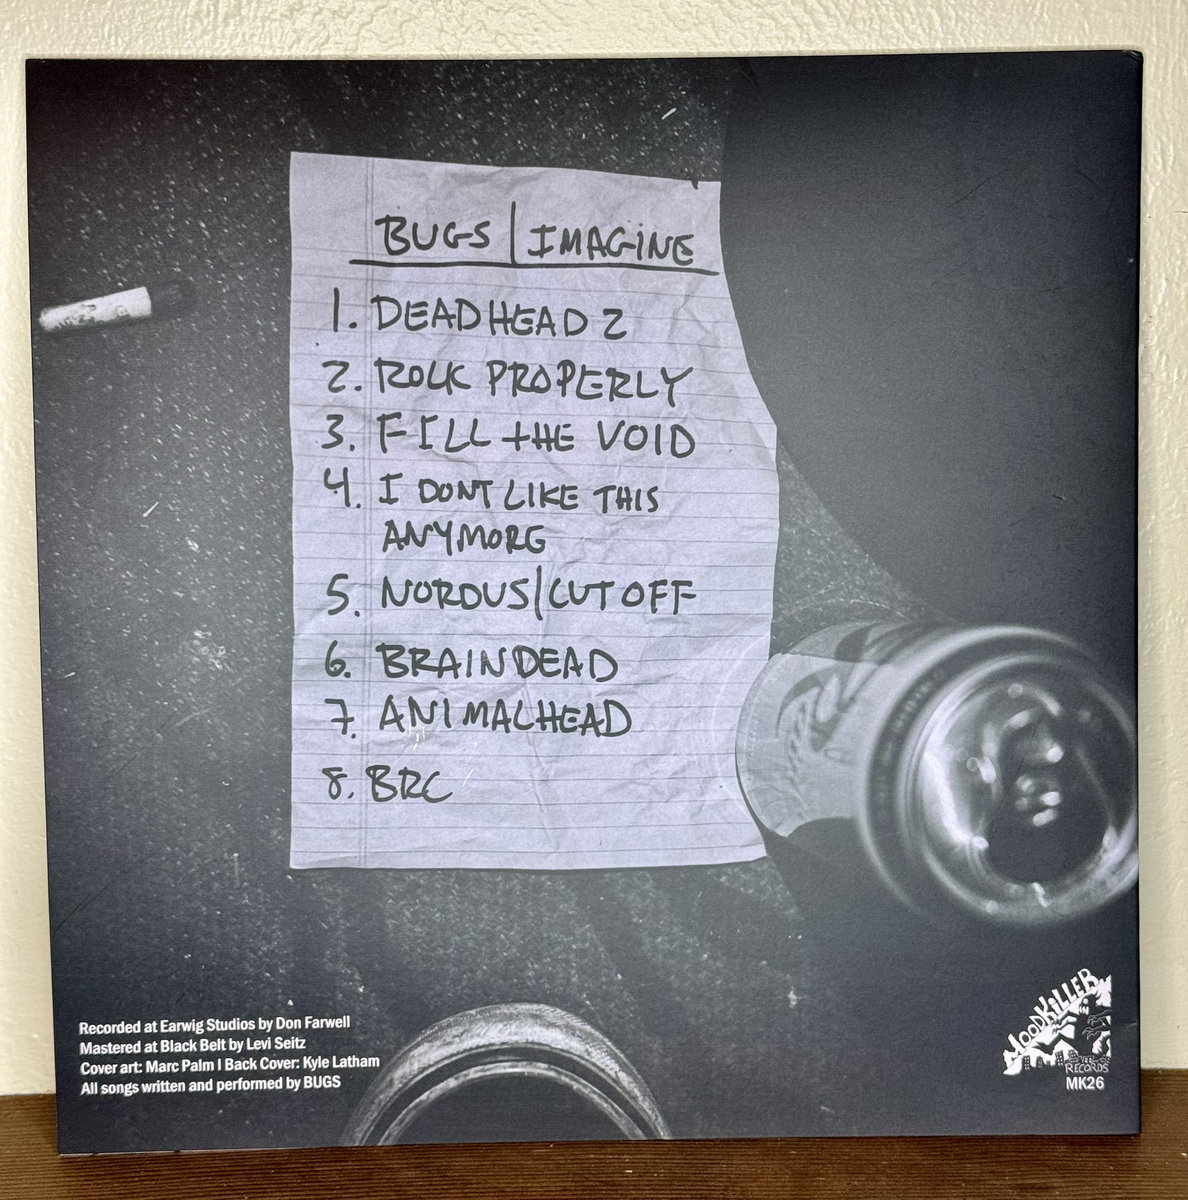 BUGS | IMAGINE
1. DEADHEAD 2
2. ROCK PROPERLY
3. FILL THE VOID
4. I DONT LIKE THIS
ANYMORE
5. NORDUS/CUTOFF
6. BRAINDEAD
7. ANIMALHEAD
8. BRC
Recorded at Earwig Studios by Don Farwell
Mastered at Black Belt by Levi Seitz
Cover art: Marc Palm | Back Cover: Kyle Latham
All songs written and performed by BUGS
MOODKILLER
RECORDS
MK26